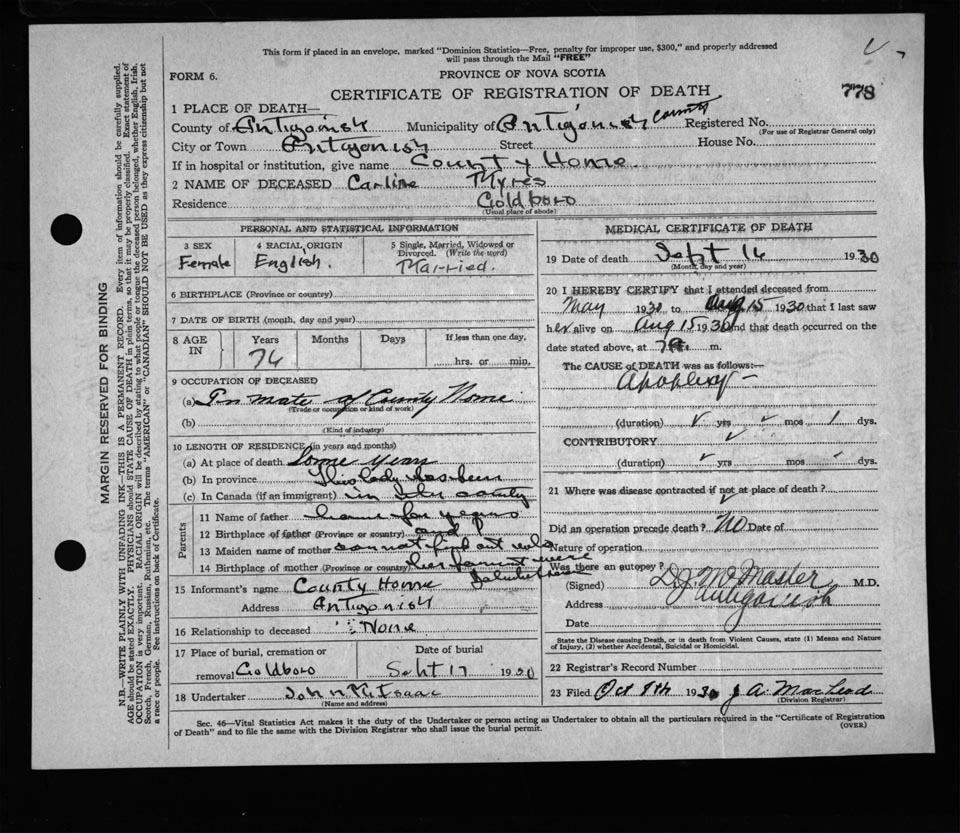 This form if placed in an envelope, marked "Dominion Statistics—Free, penalty for improper use, $300," and properly addressed
will pass through the Mail "FREE"
FORM 6.
PROVINCE OF NOVA SCOTIA
CERTIFICATE OF REGISTRATION OF DEATH
778
1 PLACE OF DEATH—
County of Antigonish Municipality of Antigonish County Registered No.
(For use of Registrar General only)
City or Town Antigonish Street House No.
If in hospital or institution, give name County Home
2 NAME OF DECEASED Carline Myres
Residence Goldboro
(Usual place of abode)
PERSONAL AND STATISTICAL INFORMATION
3 SEX
Female
4 RACIAL ORIGIN
English.
5 Single, Married, Widowed or
Divorced. (Write the word)
Married.
6 BIRTHPLACE (Province or country)
7 DATE OF BIRTH (month, day and year)
8 AGE
IN
Years
76
Months
Days
If less than one day,
hrs. or min.
9 OCCUPATION OF DECEASED
(a) In mate of County Home
(Trade or occupation or kind of work)
(b)
(Kind of industry)
10 LENGTH OF RESIDENCE (in years and months)
(a) At place of death Some years
(b) In province This lady has been
(c) In Canada (if an immigrant) in the county
Parents
11 Name of father home for years
12 Birthplace of father (Province or country) and
13 Maiden name of mother cannot find out who
14 Birthplace of mother (Province or country) her parents were
15 Informant's name County Home
Address Antigonish
16 Relationship to deceased None
17 Place of burial, cremation or
removal Goldboro
Date of burial
Sept 17 1930
18 Undertaker John McIsaac
(Name and address)
MEDICAL CERTIFICATE OF DEATH
19 Date of death Sept 16 1930
(Month, day and year)
20 I HEREBY CERTIFY that I attended deceased from
May 1930 to Aug 15 1930 that I last saw
her alive on Aug 15 1930 and that death occurred on
date stated above, at m.
The CAUSE of DEATH was as follows:
Apoplexy —
(duration) yrs mos 1 dys.
CONTRIBUTORY
(duration) yrs mos dys.
21 Where was disease contracted if not at place of death?
Did an operation precede death? No Date of
Nature of operation
Was there an autopsy?
(Signed) M.D.
Address Antigonish
Date
State the Disease causing Death, or in death from Violent Causes, state (1) Means and Nature
of Injury, (2) whether Accidental, Suicidal or Homicidal.
22 Registrar's Record Number
23 Filed Oct 8th 1930 J A. MacLeod
(Division Registrar)
Sec. 46—Vital Statistics Act makes it the duty of the Undertaker or person acting as Undertaker to obtain all the particulars required in the "Certificate of Registration
of Death" and to file the same with the Division Registrar who shall issue the burial permit.
(OVER)
MARGIN RESERVED FOR BINDING
N.B.—WRITE PLAINLY WITH UNFADING INK—THIS IS A PERMANENT RECORD. Every item of information should be carefully supplied.
AGE should be stated EXACTLY. PHYSICIANS should STATE CAUSE OF DEATH in plain terms, so that it may be properly classified. Exact statement of
OCCUPATION is very important. RACIAL ORIGIN will be described by stating to what people or tongue the deceased person belonged, whether English, Irish,
Scotch, French, German, Russian, Ruthenian, etc. The terms "AMERICAN" or "CANADIAN" SHOULD NOT BE USED as they express citizenship but not
a race or people. See instructions on back of Certificate.